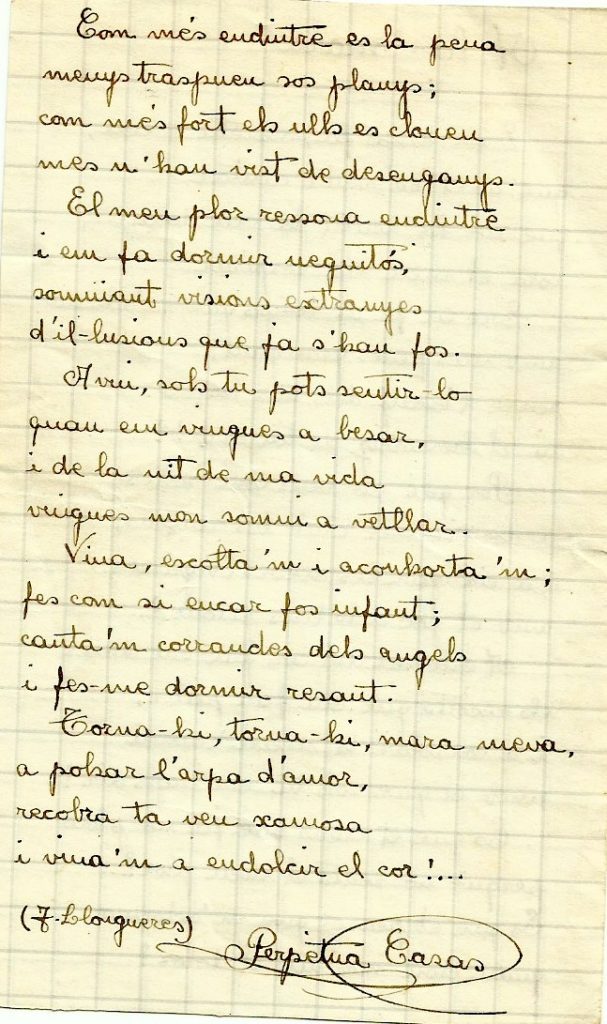 Com més endintre es la pena
menys traspuen sos planys;
com més fort els ulls es clouen
mes n'han vist de desenganys.
El meu plor ressona endintre
i em fa dormir neguitós,
somniant visions extranyes
d'il-lusions que ja s'han fos.
Avui, sols tu pots sentir-lo
quan em vingues a besar,
i de la nit de ma vida
vingues mon somni a vetllar.
Vina, escolta'm i aconhorta'm;
fes com si encar fos infant;
canta'm corrandes dels angels
i fes-me dormir resant.
Torna-hi, torna-hi, mara meva,
a polsar l'arpa d'amor,
recobra ta veu xamosa
i vina'm a endolcir el cor!...
(J. Llongueres)
Perpétua Casas